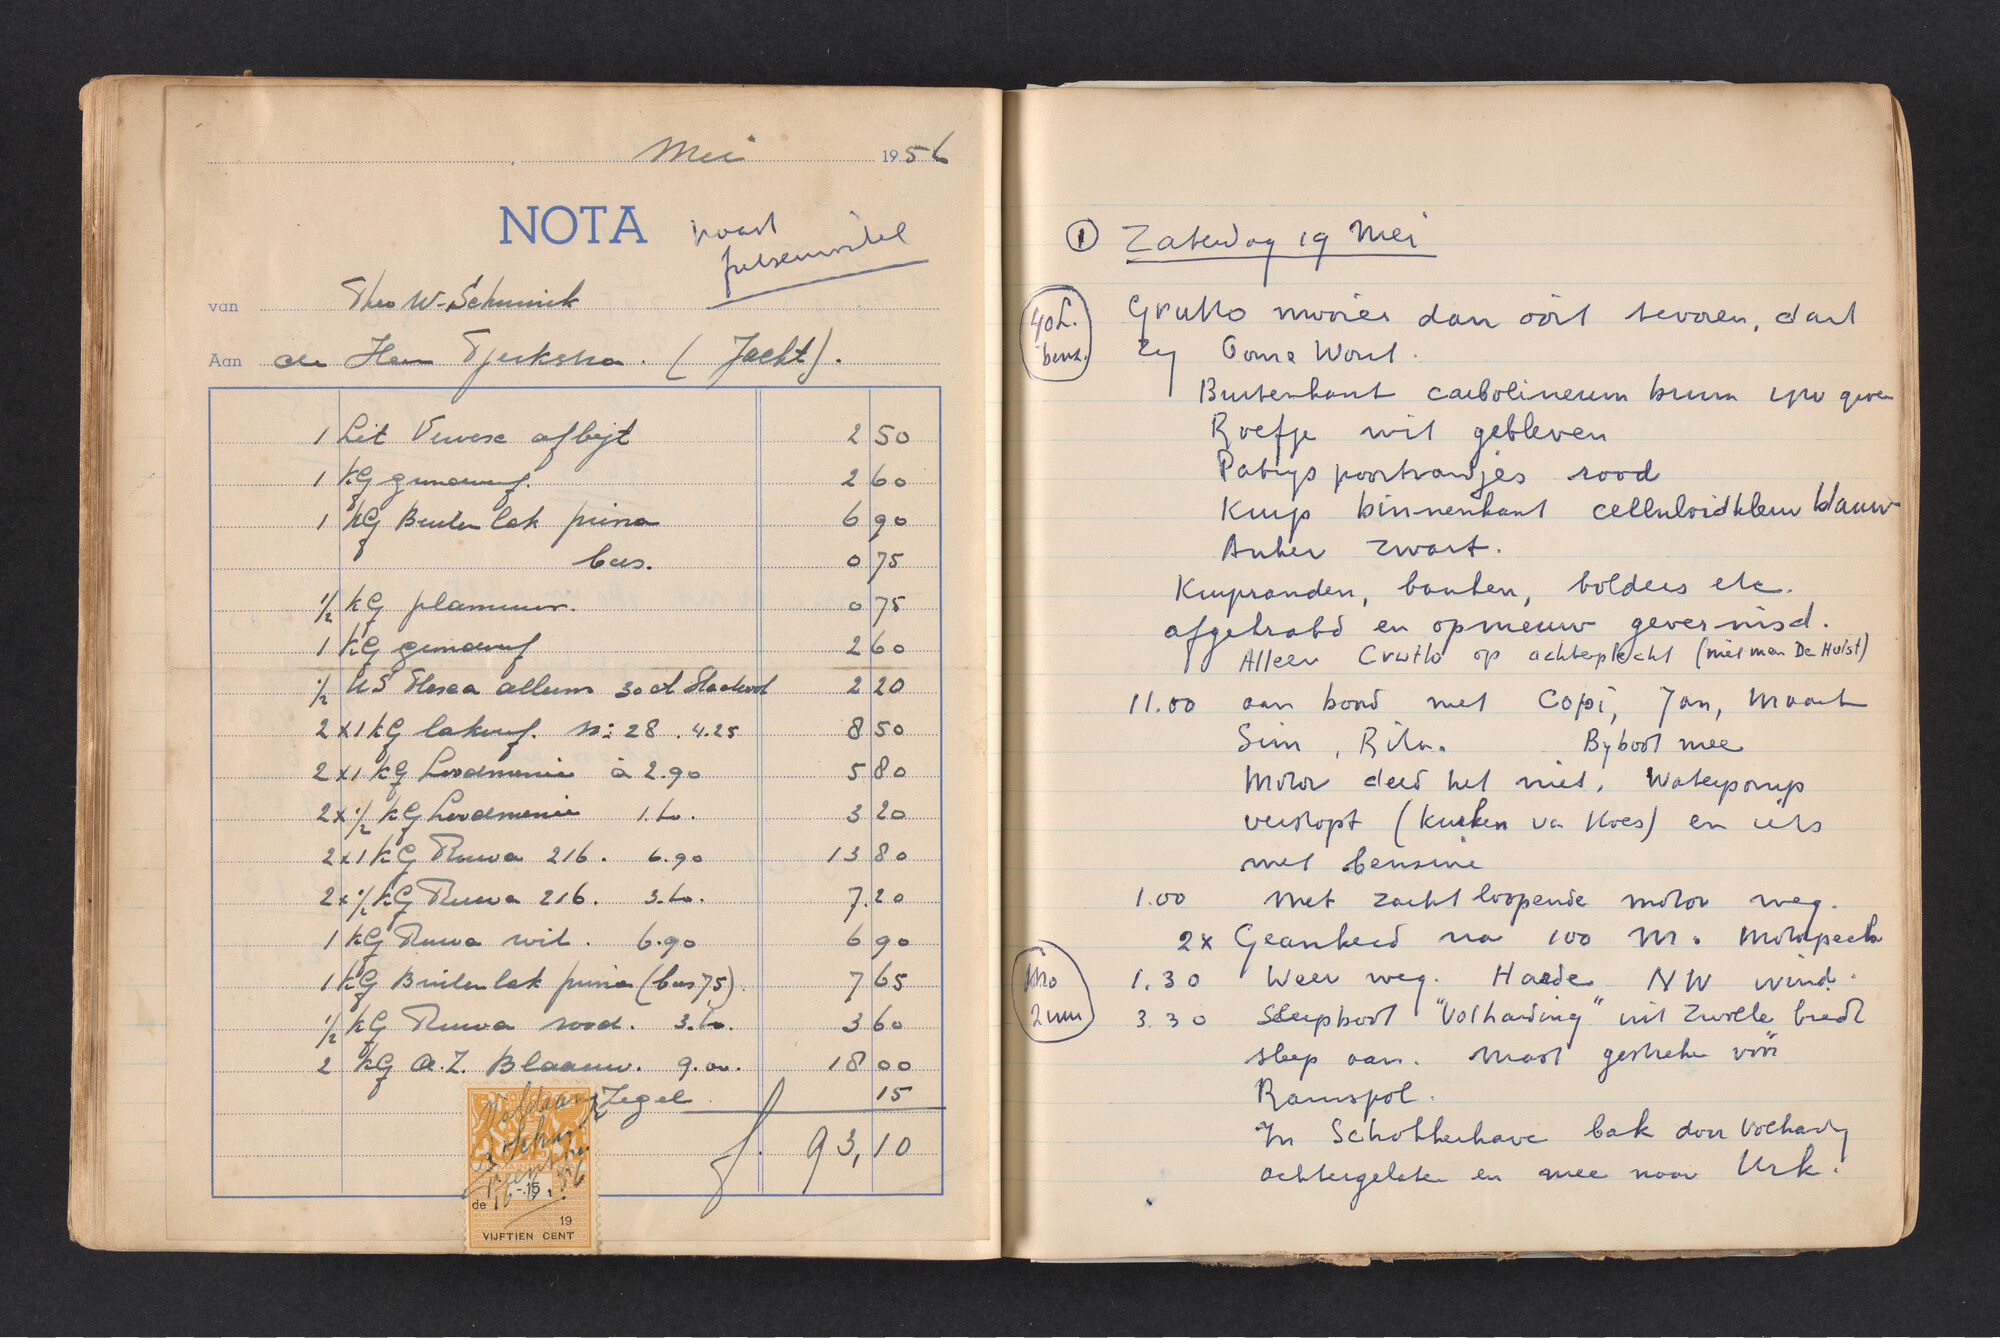 Mei 1956
NOTA
naast
van Theo W. Schurink
Aan den Heer Tjerkstra. (Jacht).
1 Lit Viverse afbijt 2 50
1 KG grondverf. 2 60
1 KG Buitenlak prima 6 90
bus. 0 75
1/2 KG plamuur. 0 75
1 KG grondverf 2 60
1/2 2 20
2x1 KG lakverf. No: 28. 4.25 8 50
2x1 KG Loodmenie à 2.90 5 80
2x1/2 KG Loodmenie 1.60. 3 20
2x1 KG Ruwa 216. 6.90 13 80
2x1/2 KG Ruwa 216. 3.60. 7.20
1 KG Ruwa wit. 6.90 6 90
1 KG Buitenlak prima (bus 75) 7 65
1/2 KG Ruwa rood. 3.60. 3 60
2 KG A.Z. Blaauw. 9.00. 18 00
Zegel 15
f. 93,10
Voldaan
-.15
de 19
VIJFTIEN CENT
① Zaterdag 19 Mei
40 L.
benz.
Grutto mooier dan ooit tevoren, dank
zij Oome Wout.
Buitenkant carbolineum bruin ipv geven
Roefje wit gebleven
Patrijspoortrandjes rood
Kuip binnenkant celluloidkleur blauw
Anker zwart.
Kuipranden, banken, bolders etc.
afgekrabd en opnieuw gevernisd.
Alleen Grutto op achterplecht (niet meer De Hulst)
11.00 aan boord met Copi, Jan, Maart
Sim, Rita. Bijboot mee
Motor deed het niet. Waterpomp
verstopt (kurken va Kees) en iets
met benzine
1.00 Met zacht loopende motor weg.
2x Geankerd na 100 M. Motorpech
1.30 Weer weg. Harde NW wind.
2 uur
3.30 Sleepboot "Volharding" uit Zwolle biedt
sleep aan. Mast gestreken vóór
Ramspol.
In Schokkerhave bak door Volhardg
achtergelaten en mee naar Urk.